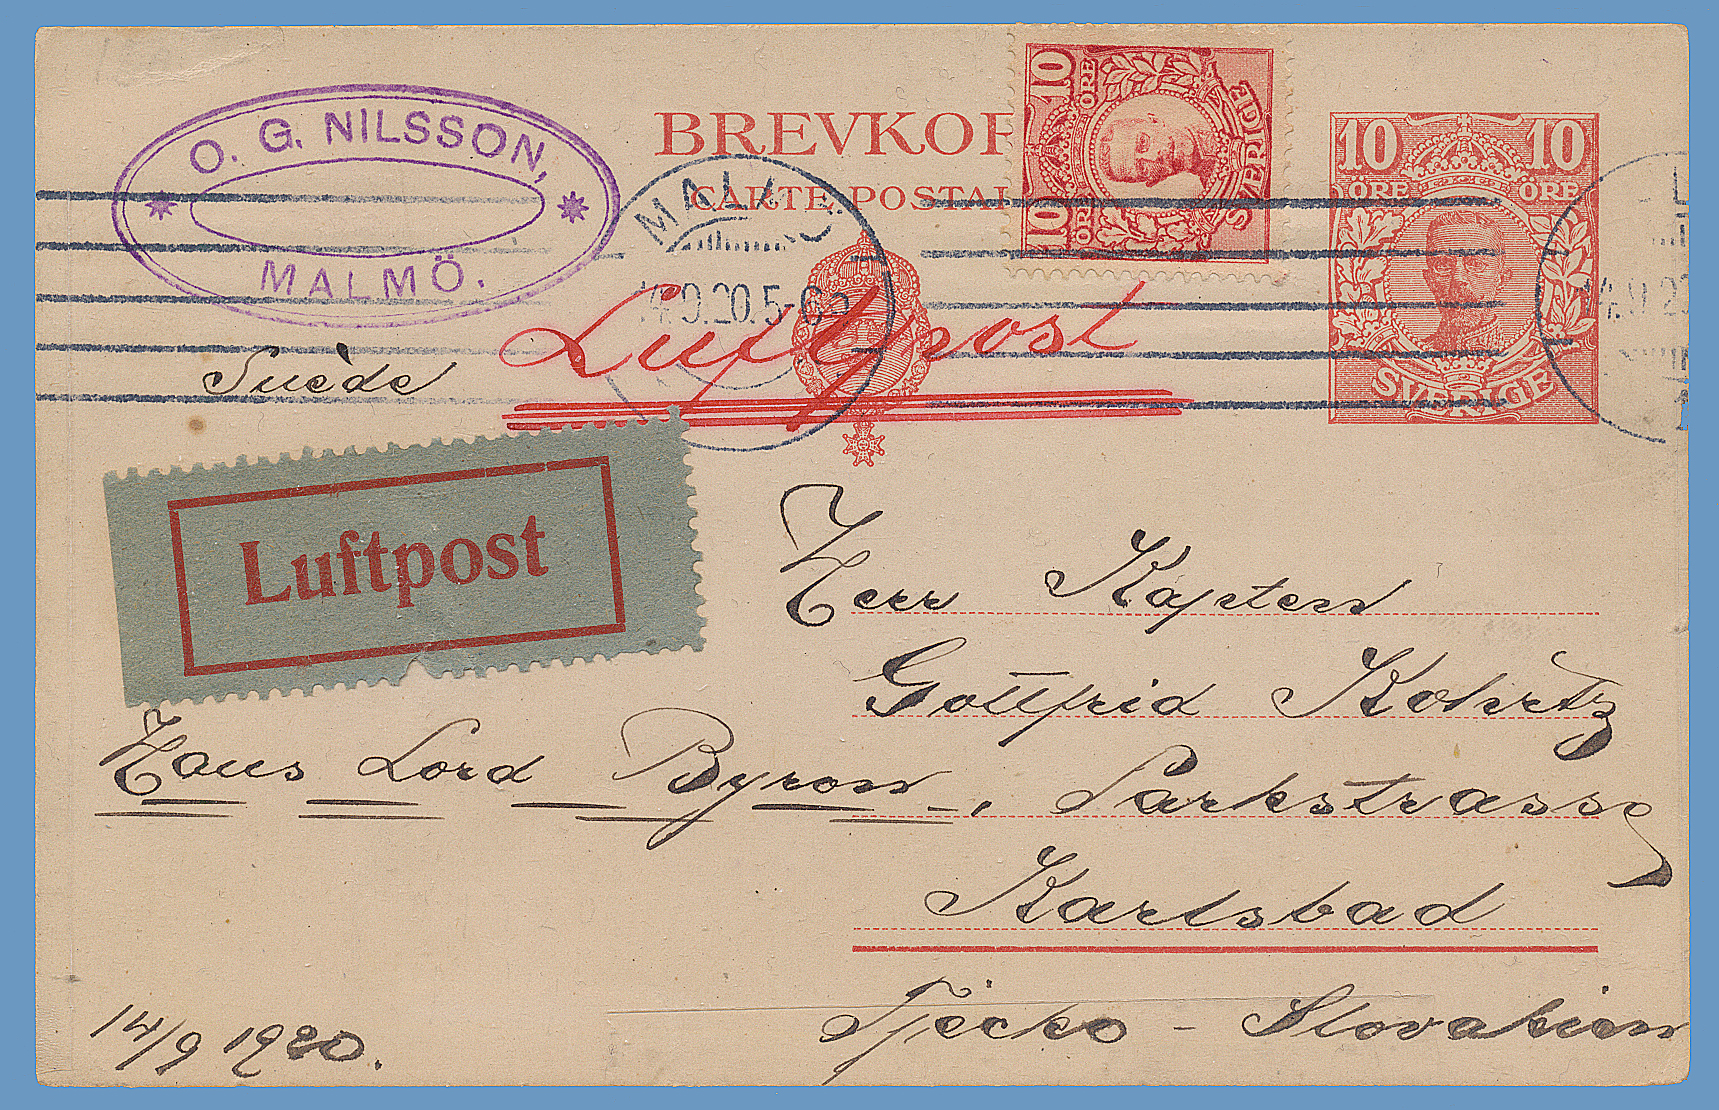 O. G. NILSSON,
MALMÖ.
BREVKOR
CARTE POSTAL
10 ÖRE 10 ÖRE
SVERIGE
10 10
ÖRE ÖRE
SVERIGE
MALMÖ
14.9.20.5-6
Luftpost
Suède
Luftpost
Herr Kapten
Gottfrid Kohrtz
Haus Lord Byron, Parkstrasse
Karlsbad
Tjecko - Slovakien
14/9 1920.